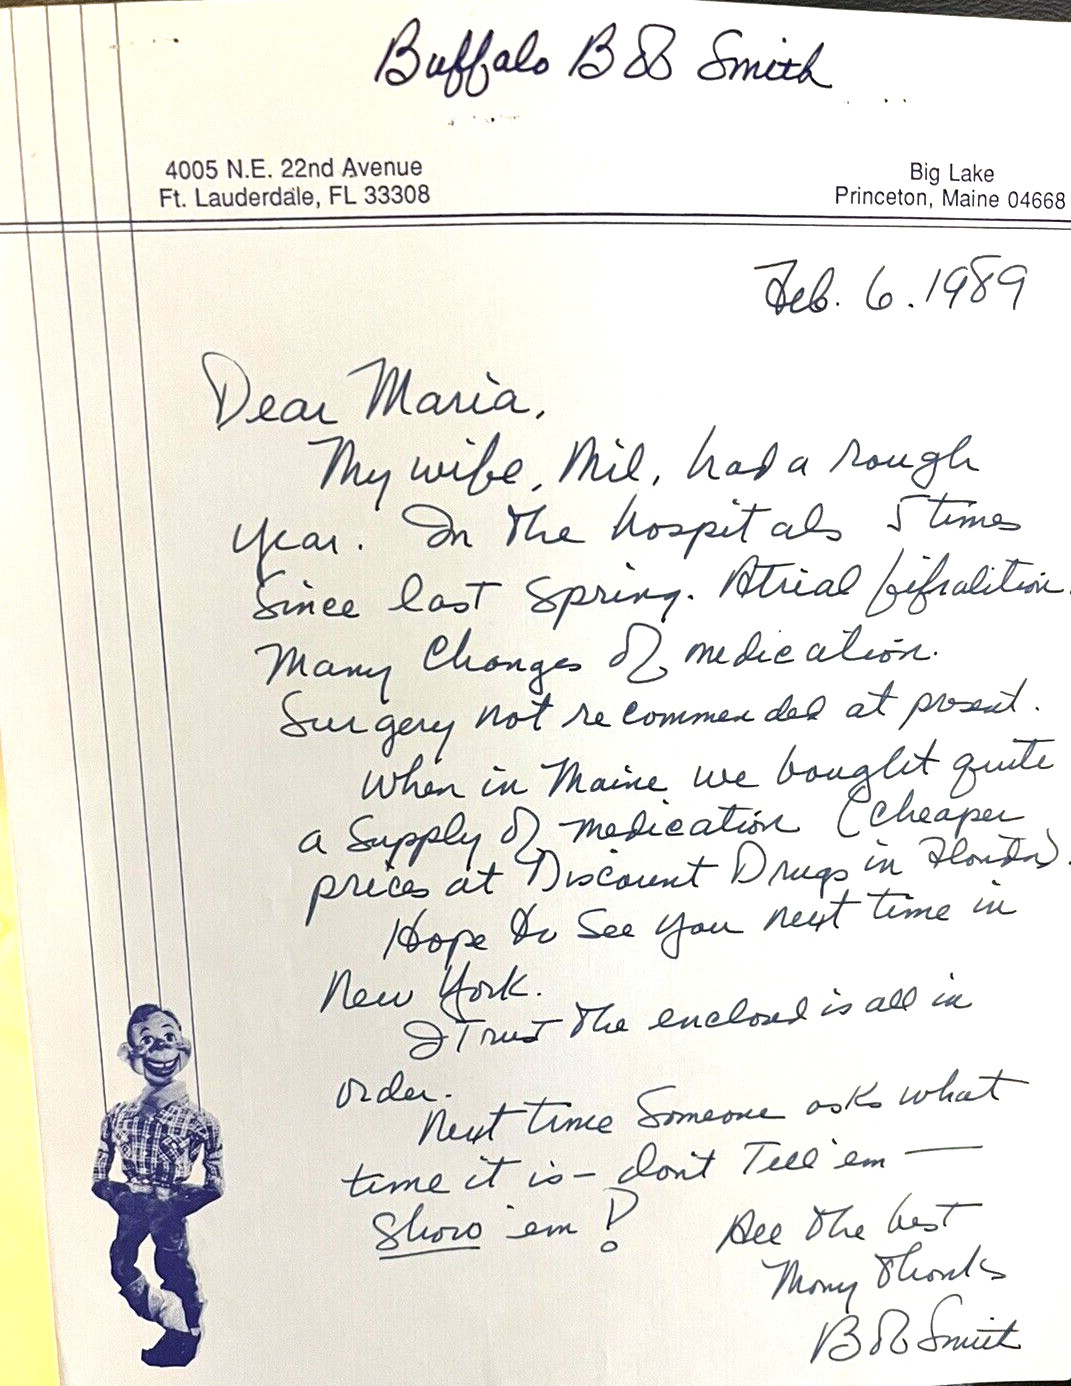 Buffalo Bob Smith
4005 N.E. 22nd Avenue
Ft. Lauderdale, FL 33308
Big Lake
Princeton, Maine 04668
Feb. 6. 1989
Dear Maria,
My wife, Mil, had a rough
year. In the hospitals 5 times
Since last Spring. Atrial fifralition.
Many Changes of medication.
Surgery not recommended at present.
When in Maine we bought quite
a Supply of medication (cheaper
prices at Discount Drugs in Florida).
Hope to See you next time in
New York.
I Trust the enclosed is all in
order.
Next time Someone asks what
time it is – don't Tell 'em —
Show 'em!
All the best
Many thanks
Bob Smith